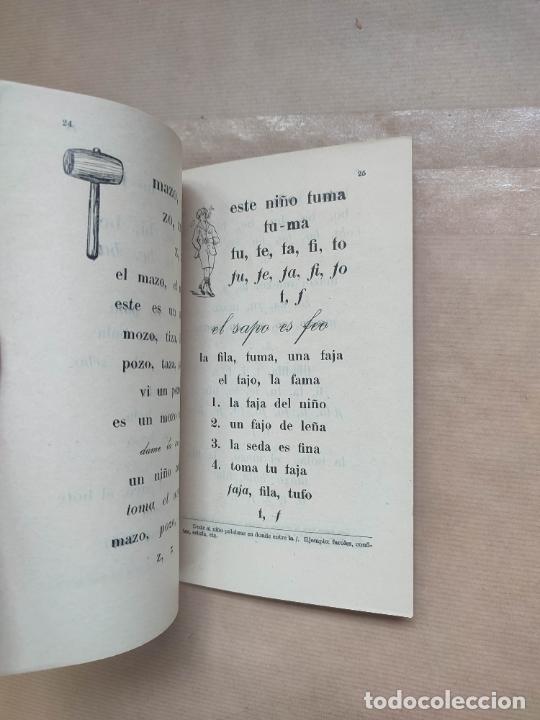 24
mazo,
zo,
z,
el mazo, el
este es un
mozo, tiza,
pozo, taza,
vi un
es un mozo
dame la
un niño
toma el
mazo, pozo,
z, z
25
este niño fuma
fu-ma
fu, fe, fa, fi, fo
fu, fe, fa, fi, fo
f, f
el sapo es feo
la fila, fuma, una faja
el fajo, la fama
1. la faja del niño
2. un fajo de leña
3. la seda es fina
4. toma tu faja
faja, fila, tufo
f, f
Dicte al niño palabras en donde entre la f. Ejemplo: faroles, confi-
tes, estufa, etc.
todocoleccion
todocoleccion.net